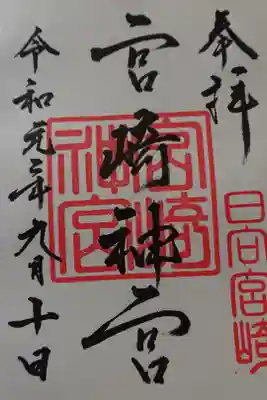 奉拝
日向宮崎
宮崎神宮
宮崎神宮
令和元年九月十日